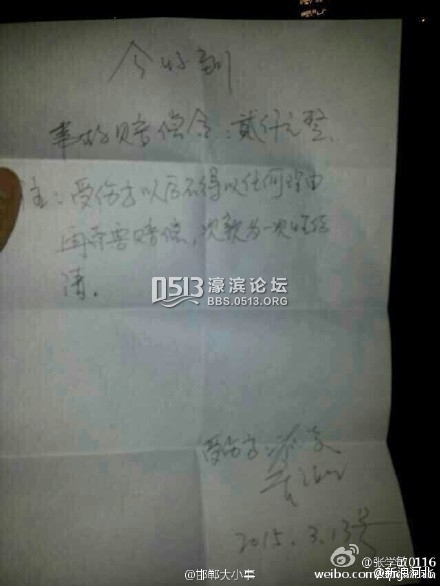 今收到
事故赔偿金:贰仟元整
注:受伤方以后不得以任何理由
再索要赔偿,次款为一次性结
清.
0513 濠滨论坛
BBS.0513.ORG
受伤方:
2015.3.13号
@张学敏0116
weibo.com/
@新浪河北
@邯郸大小事